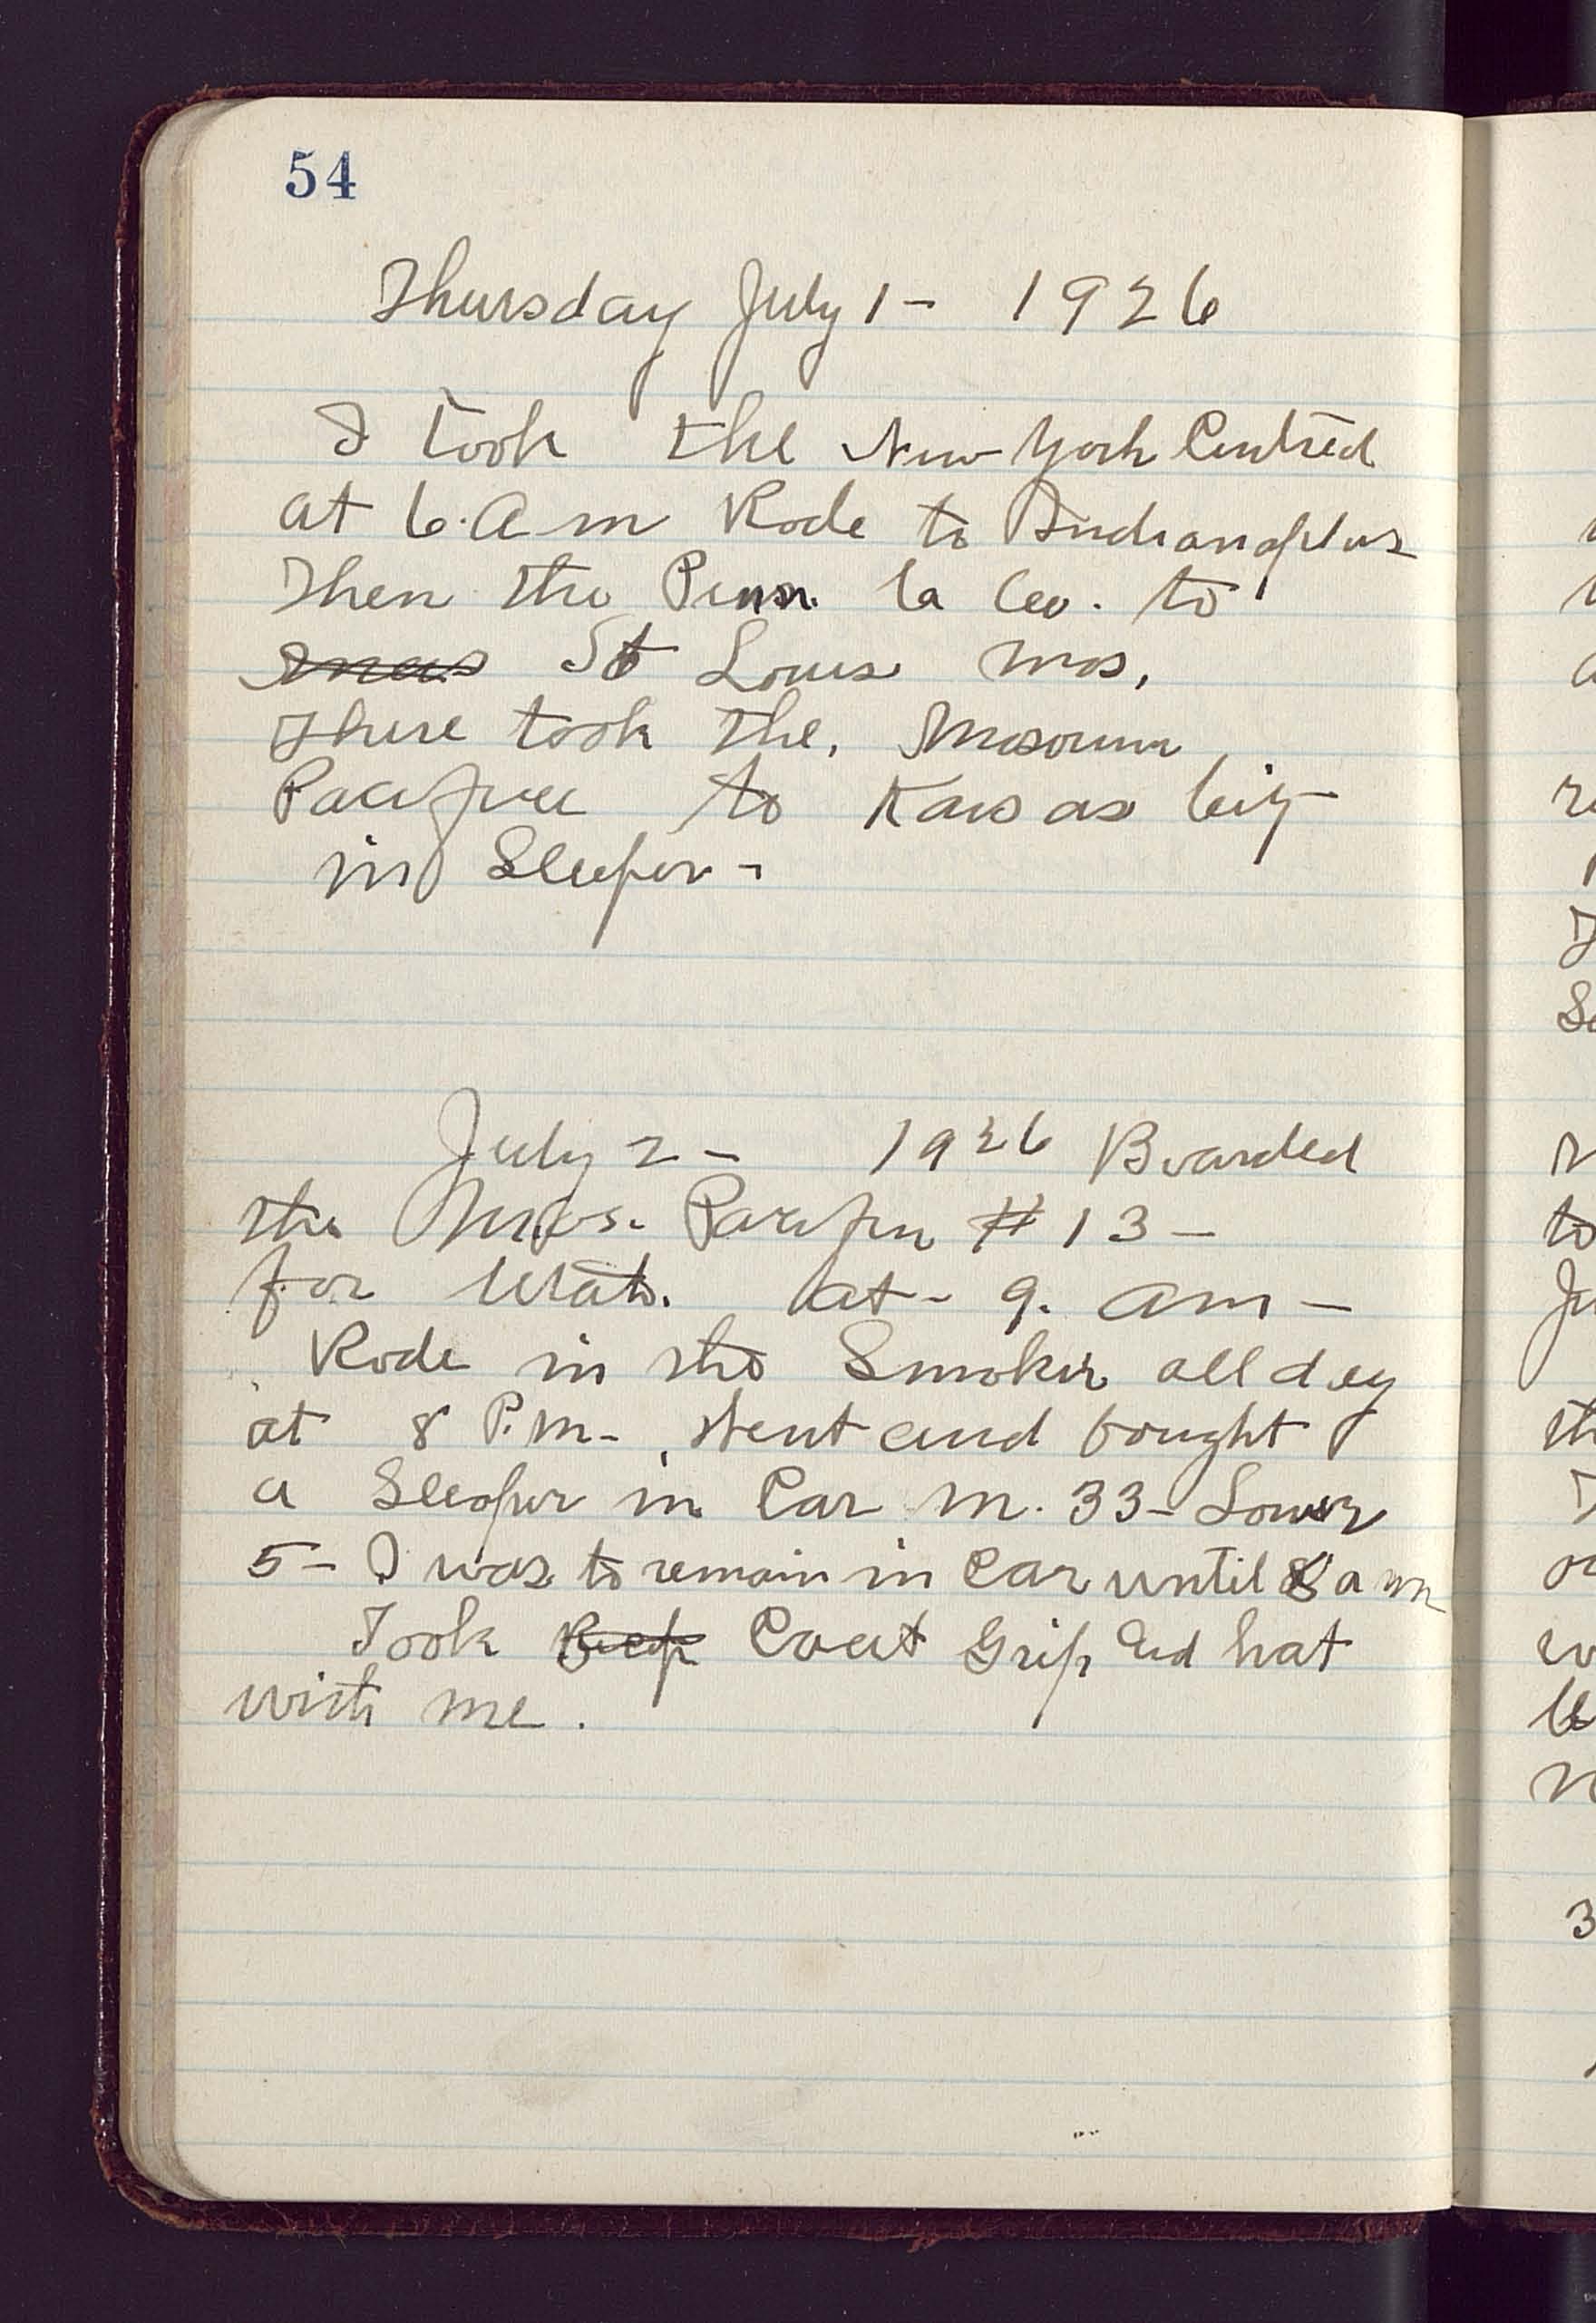 54
Thursday July 1 - 1926
I took the New York Central
at 6. A m Rode to Indianaplus
Then the Penn. to
St Louis Mos.
There took the. Missouri
Pacific to Kansas City
in Sleeper -
July 2 - 1926 Boarded
the Mos. Pacific # 13 -
for at - 9. am -
Rode in the Smoker all day
at 8 P.M - Went and bought
a Sleeper in Car M. 33 - Lower
5 - I was to remain in Car until 8 a m
Took Coat Grip and hat
with me.